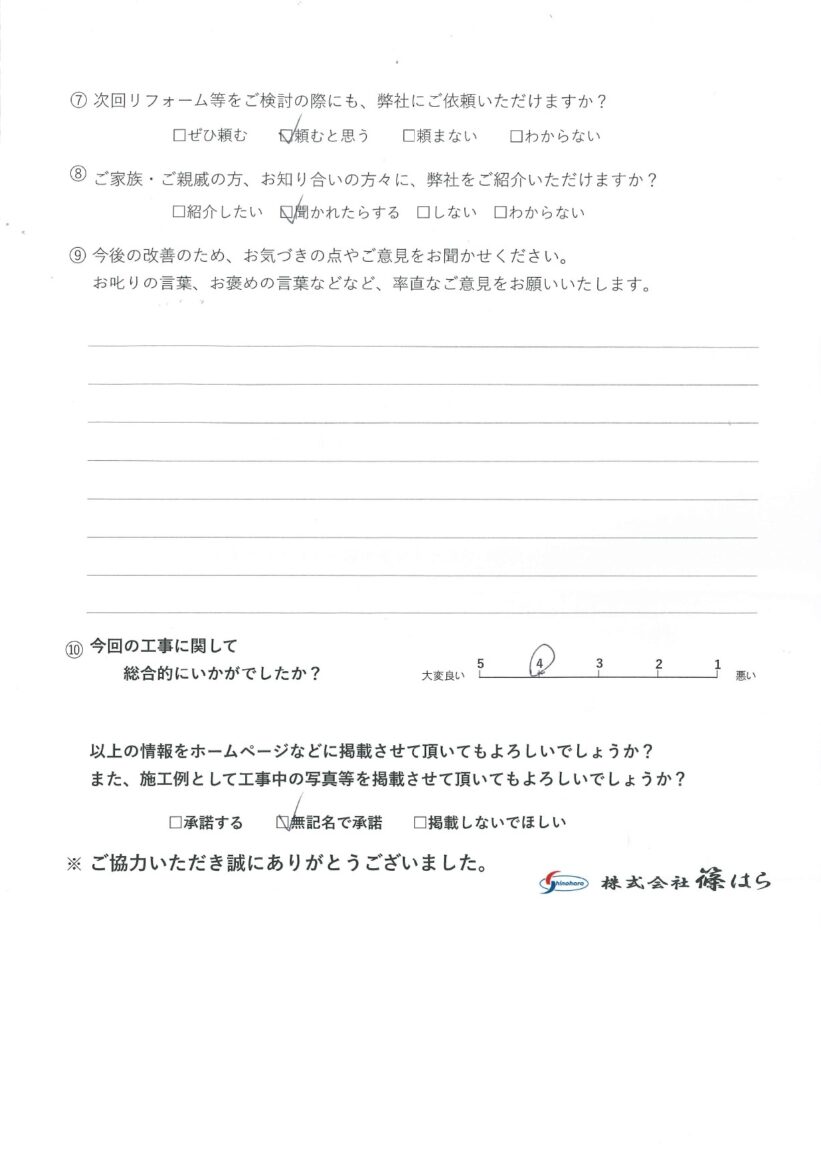 ⑦ 次回リフォーム等をご検討の際にも、弊社にご依頼いただけますか？
□ぜひ頼む ☑頼むと思う □頼まない □わからない
⑧ ご家族・ご親戚の方、お知り合いの方々に、弊社をご紹介いただけますか？
□紹介したい ☑聞かれたらする □しない □わからない
⑨ 今後の改善のため、お気づきの点やご意見をお聞かせください。
お叱りの言葉、お褒めの言葉などなど、率直なご意見をお願いいたします。
⑩ 今回の工事に関して
総合的にいかがでしたか？
大変良い 5 4 3 2 1 悪い
以上の情報をホームページなどに掲載させて頂いてもよろしいでしょうか？
また、施工例として工事中の写真等を掲載させて頂いてもよろしいでしょうか？
□承諾する ☑無記名で承諾 □掲載しないでほしい
※ ご協力いただき誠にありがとうございました。
Shinohara 株式会社 篠はら